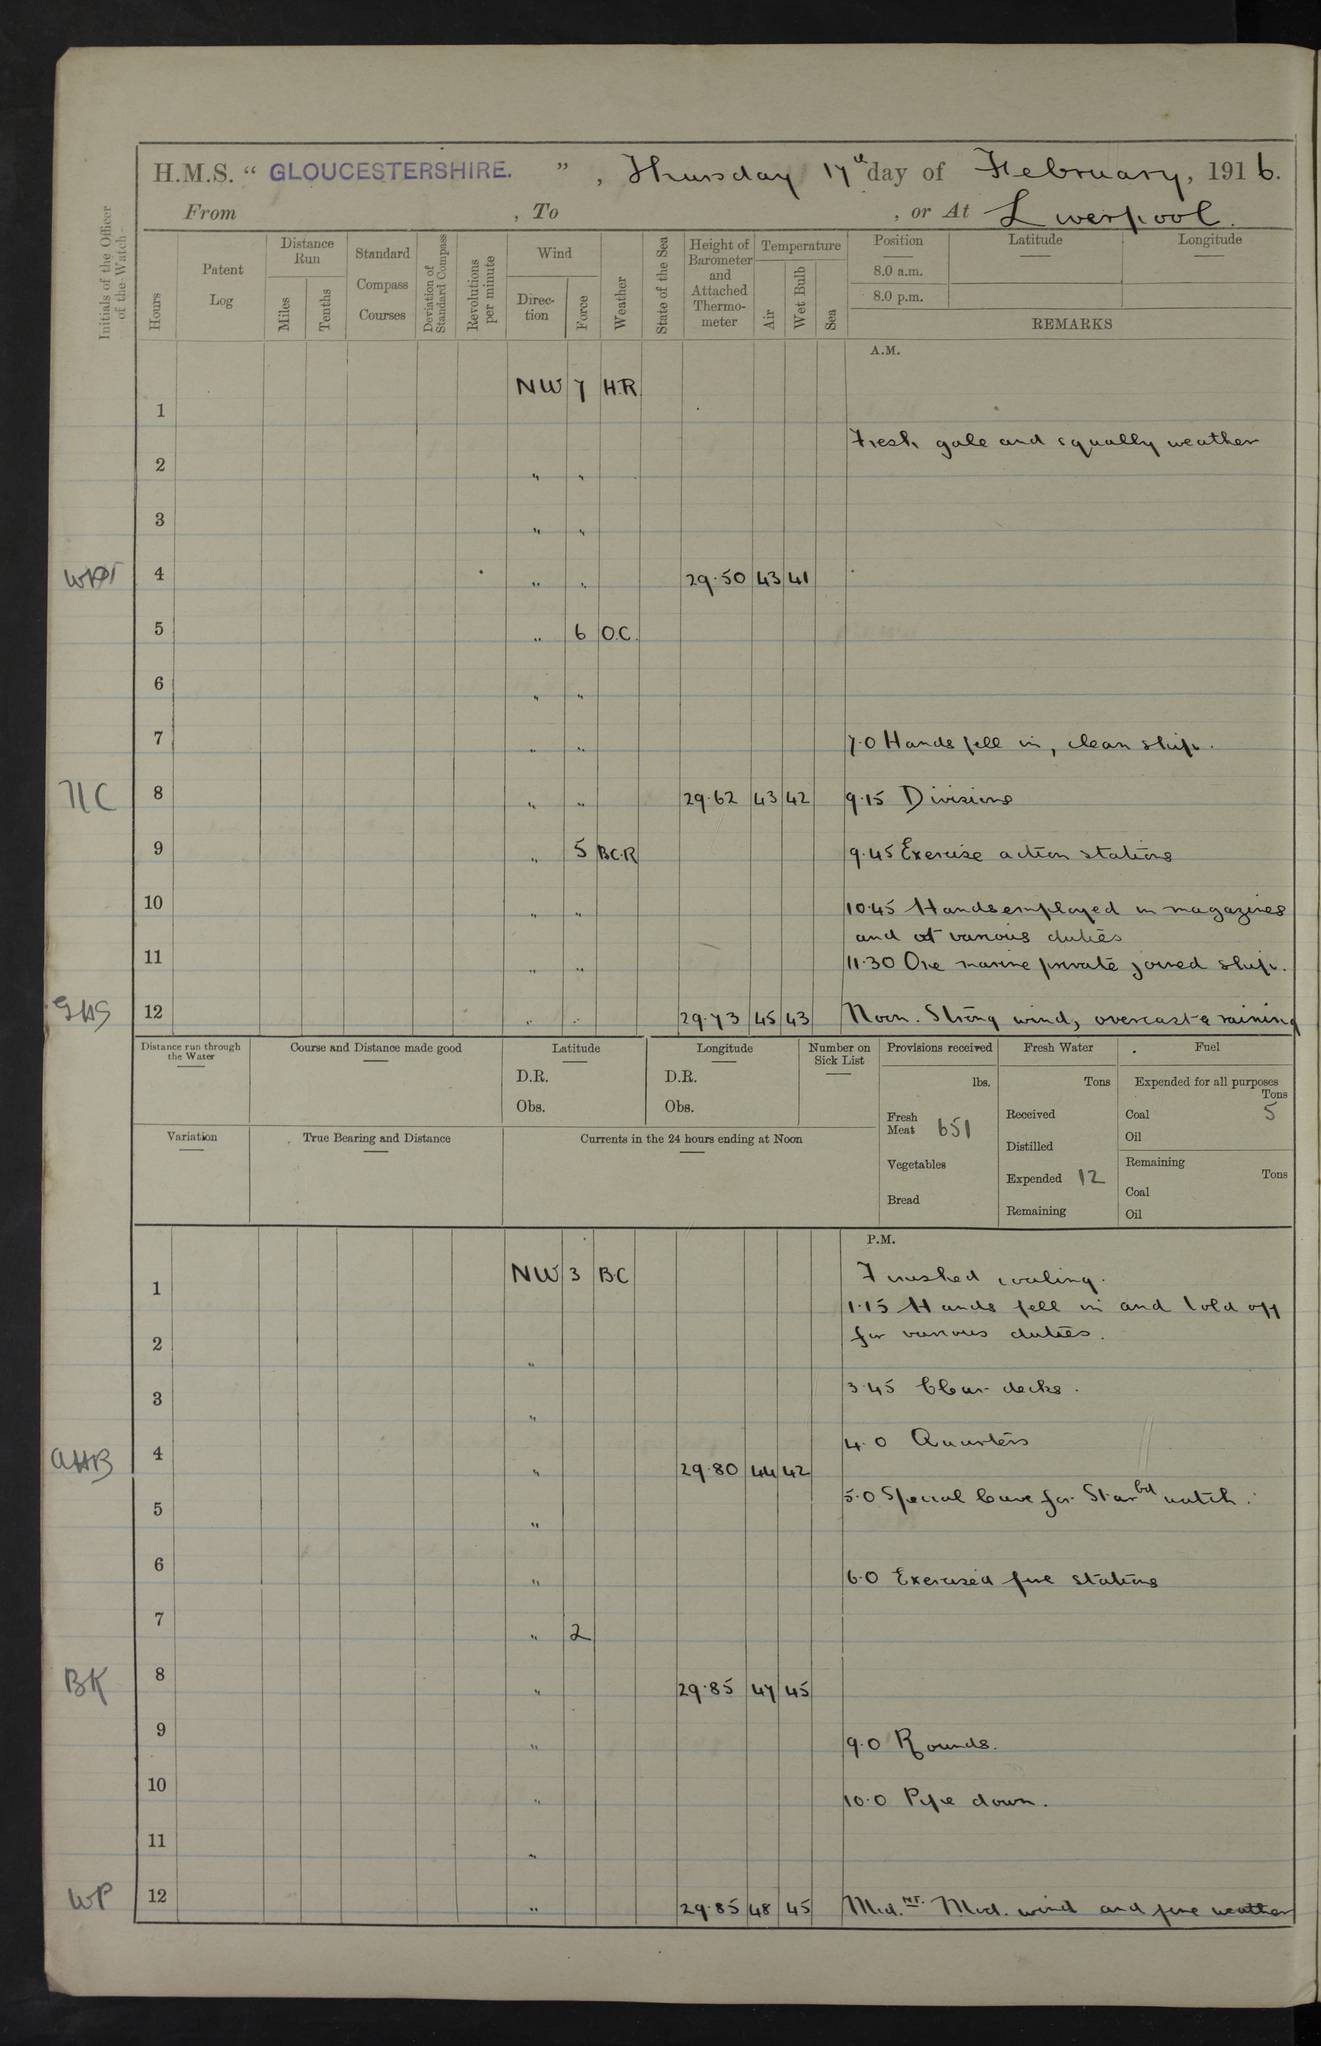 H.M.S. “ GLOUCESTERSHIRE. ” , Thursday 17th day of February, 1916.
From , To , or At Liverpool.
Initials of the Officer of the Watch
Hours
Patent Log
Distance Run
Miles
Tenths
Standard Compass Courses
Deviation of Standard Compass
Revolutions per minute
Wind
Direc-tion
Force
Weather
State of the Sea
Height of Barometer and Attached Thermo-meter
Temperature
Air
Wet Bulb
Sea
Position
8.0 a.m.
8.0 p.m.
Latitude
Longitude
REMARKS
A.M.
1 NW 7 H.R
Fresh gale and squally weather
2 " "
3 " "
4 " " 29.50 43 41
5 " 6 O.C.
6 " "
7 " " 7.0 Hands fell in, clean ship.
NC 8 " " 29.62 43 42 9.15 Divisions
9 " 5 B.C.R 9.45 Exercise action stations
10 " " 10.45 Hands employed in magazines
and at various duties
11 " " 11.30 One marine private joined ship.
12 " " 29.73 45 43 Noon. Strong wind, overcast & raining
Distance run through the Water
Course and Distance made good
Latitude
D.R.
Obs.
Longitude
D.R.
Obs.
Number on Sick List
Provisions received
lbs.
Fresh Meat 651
Vegetables
Bread
Fresh Water
Tons
Received
Distilled
Expended 12
Remaining
Fuel
Expended for all purposes
Tons
Coal 5
Oil
Remaining
Tons
Coal
Oil
Variation
True Bearing and Distance
Currents in the 24 hours ending at Noon
P.M.
1 NW 3 B.C Finished coaling.
1.15 Hands fell in and told off
2 " for various duties.
3 " 3.45 Clear decks.
AHB 4 " 29.80 44 42 4.0 Quarters
5 " 5.0 Special leave for Starbd watch.
6 " 6.0 Exercised fire stations
7 " 2
BK 8 " 29.85 47 45
9 " 9.0 Rounds.
10 " 10.0 Pipe down.
11 "
WP 12 " 29.85 48 45 Mid.nt. Mod. wind and fine weather